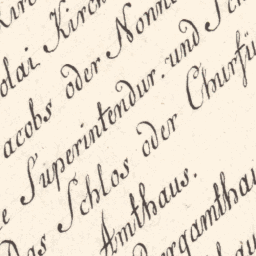 olai. Kirch
acobs oder Nonne
Superintendur. und
Das Schlos oder Churfü
Amthaus.
Bergamtha